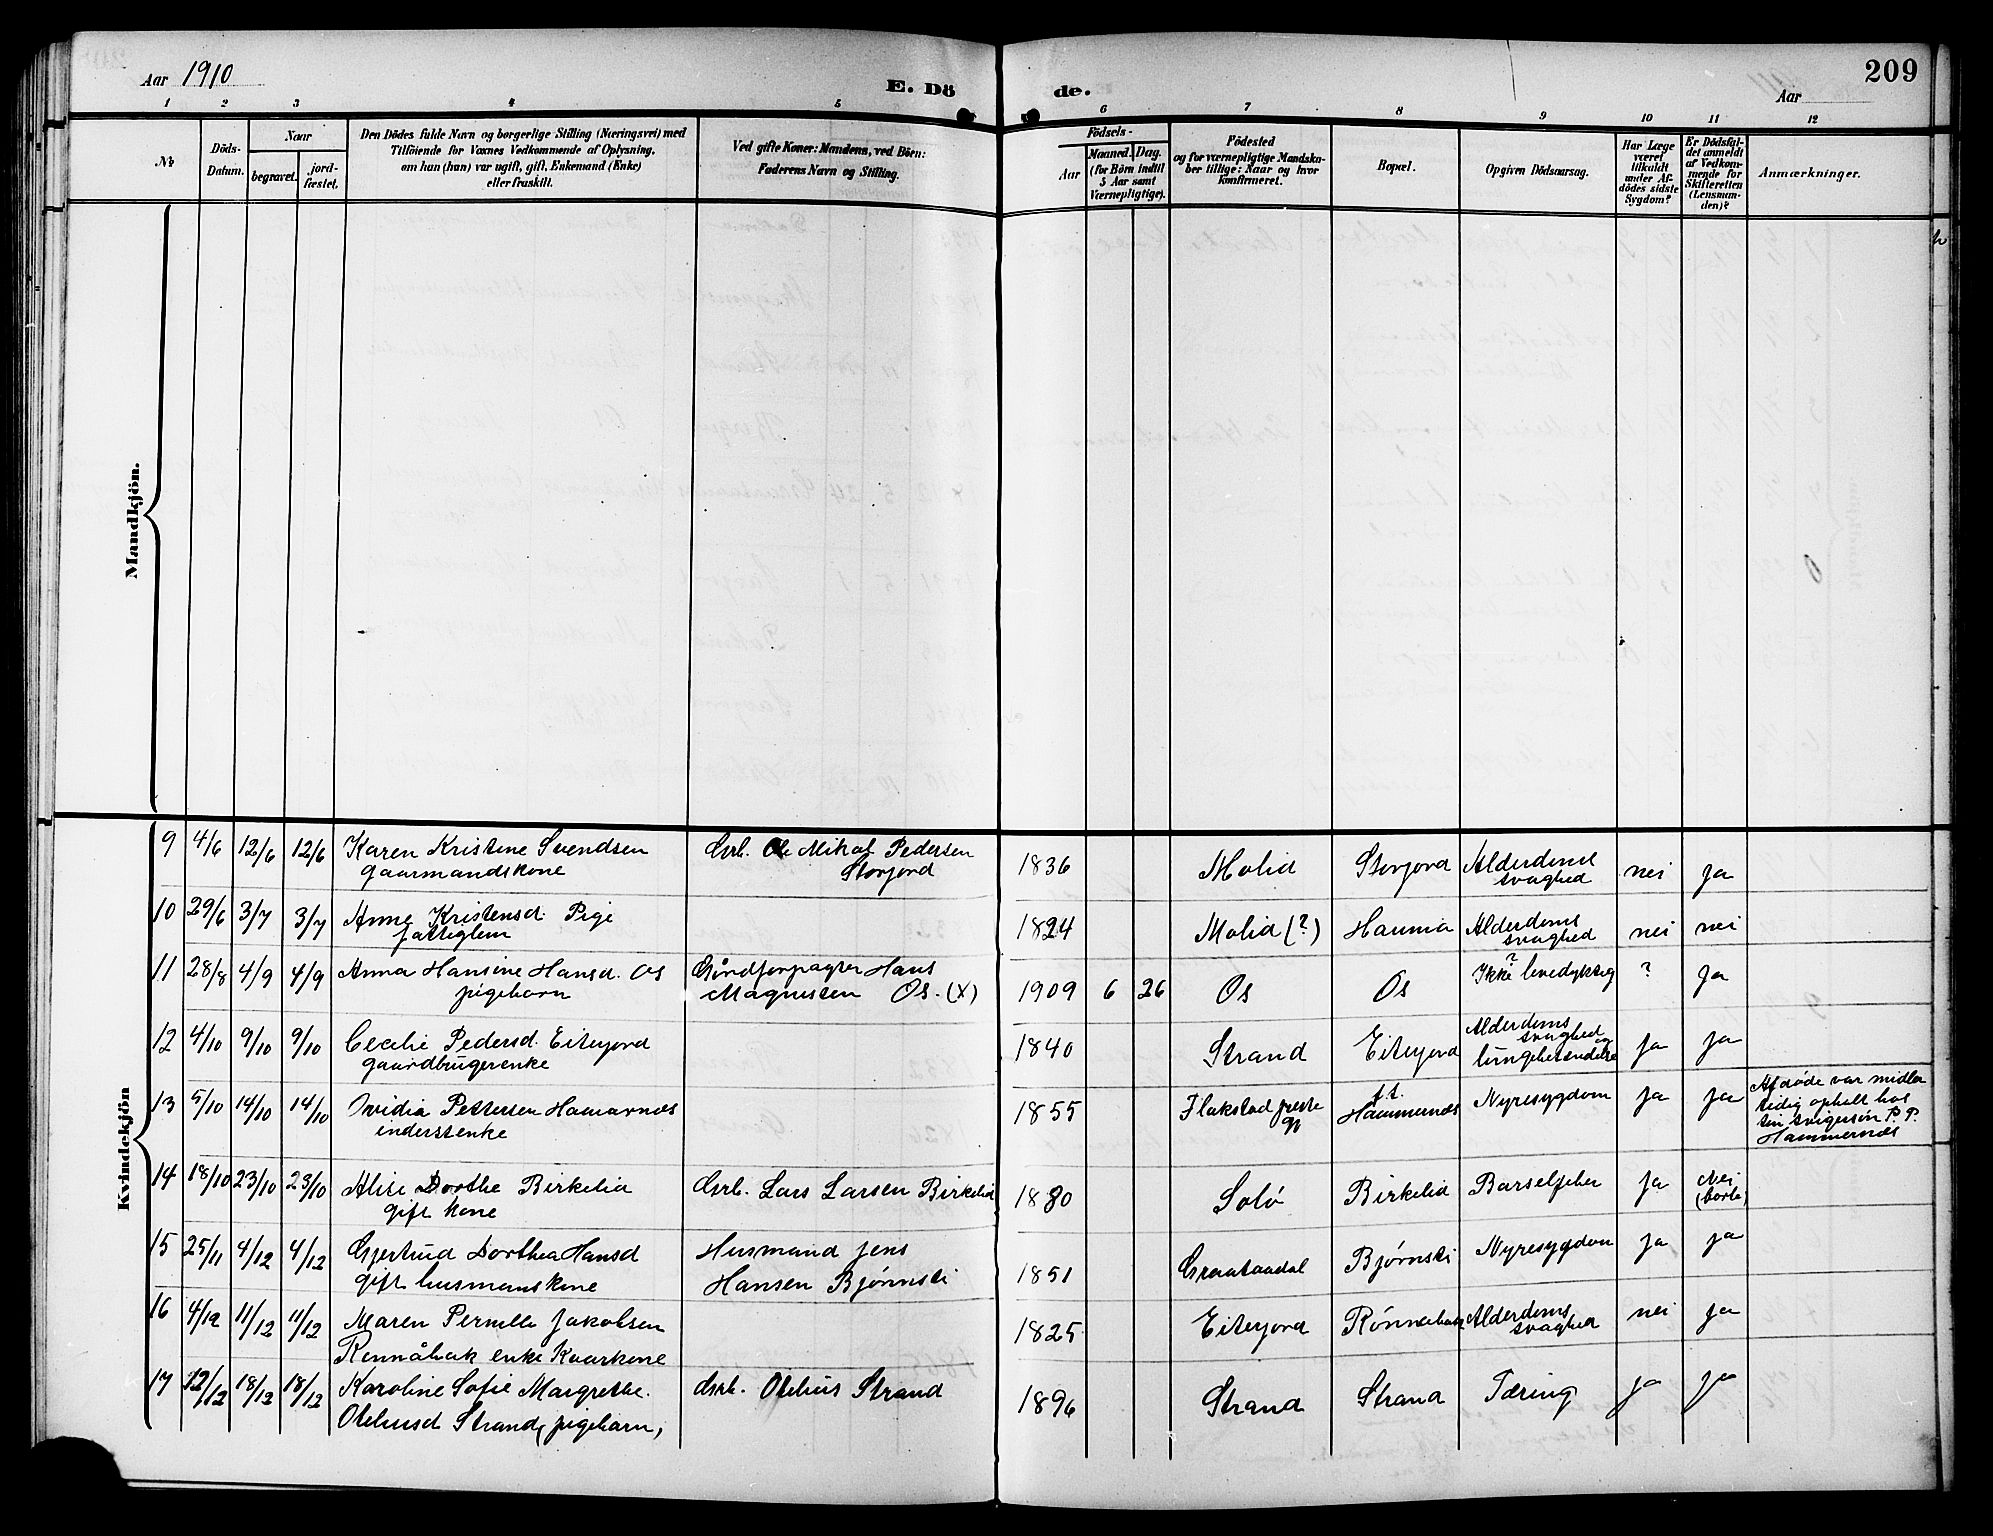 Aar 1910
E. Dö
de.
209
Aar
1 2 3 4 5 6 7 8 9 10 11 12
No
Döds-
Datum.
Naar
begravet.
jord-
fæstet.
Den Dödes fulde Navn og borgerlige Stilling (Næringsvei) med
Tilföiende for Voxnes Vedkommende af Oplysning,
om han (hun) var ugift, gift, Enkemand (Enke)
eller fraskilt.
Ved gifte Koner: Mandens, ved Börn:
Faderens Navn og Stilling.
Födsels-
Aar
Maaned. Dag.
(for Börn indtil
5 Aar samt
Værnepligtige).
Födested
og for værnepligtige Mandska-
ber tillige: Naar og hvor
konfirmeret.
Bopæl.
Opgiven Dödsaarsag.
Har Læge
været
tilkaldt
under Af-
dödes sidste
Sygdom?
Er Dödsfal-
det anmeldt
af Vedkom-
mende for
Skifteretten
(Lensman-
den)?
Anmærkninger.
Mandkjön.
Kvindekjön
9 4/6 12/6 12/6 Karen Kristine Svendsen
gaarmandskone
Grb. Ole Mikal Pedersen
Storjord
1836 Molid Storjord Alderdoms
svaghed
nei ja
10 29/6 3/7 3/7 Anne Kristensd. Pige
fattiglem
1824 Molid (?) Haumia Alderdoms
svaghed
nei nei
11 28/8 4/9 4/9 Anna Hansine Hansd. Os
pigebarn
Gårdforpagter Hans
Magnussen Os. (x)
1909 6 26 Os Os ?
Ikke levedyktig
? Ja
12 4/10 9/10 9/10 Cecelie Pedersd. Eiterjord
gaardbrugerenke
1840 Strand Eiterjord Alderdoms
svaghed og
lungebetændelse
ja ja
13 5/10 14/10 14/10 Ovidia Pettersen Hamarnæs
inderstenke
1855 Flakstad preste
gj
f.t.
Hammernæs
Nyresygdom ja ja
Afdøde var midler
tidig ophold hos
sin svigersøn P. P.
Hammernæs
14 18/10 23/10 23/10 Alise Dorthe Birkelia
gift kone
Grb. Lars Larsen Birkelid
1880 Solö Birkelid Barselfeber ja Nei
(borte)
15 25/11 4/12 4/12 Gjertrud Dorthea Hansd
gift husmanskone
Husmand Jens
Hansen Bjørnsti
1851 Graataadal Bjørnsti Nyresygdom ja ja
16 4/12 11/12 11/12 Maren Pernille Jakobsen
Rennåbak enke Kaarkone
1825 Eiterjord Rönnabak Alderdoms
svaghed
nei ja
17 12/12 18/12 18/12 Karoline Sofie Margrethe
Oteliusd Strand, pigebarn,
Grb. Otelius Strand
1896 Strand Strand Tæring ja ja